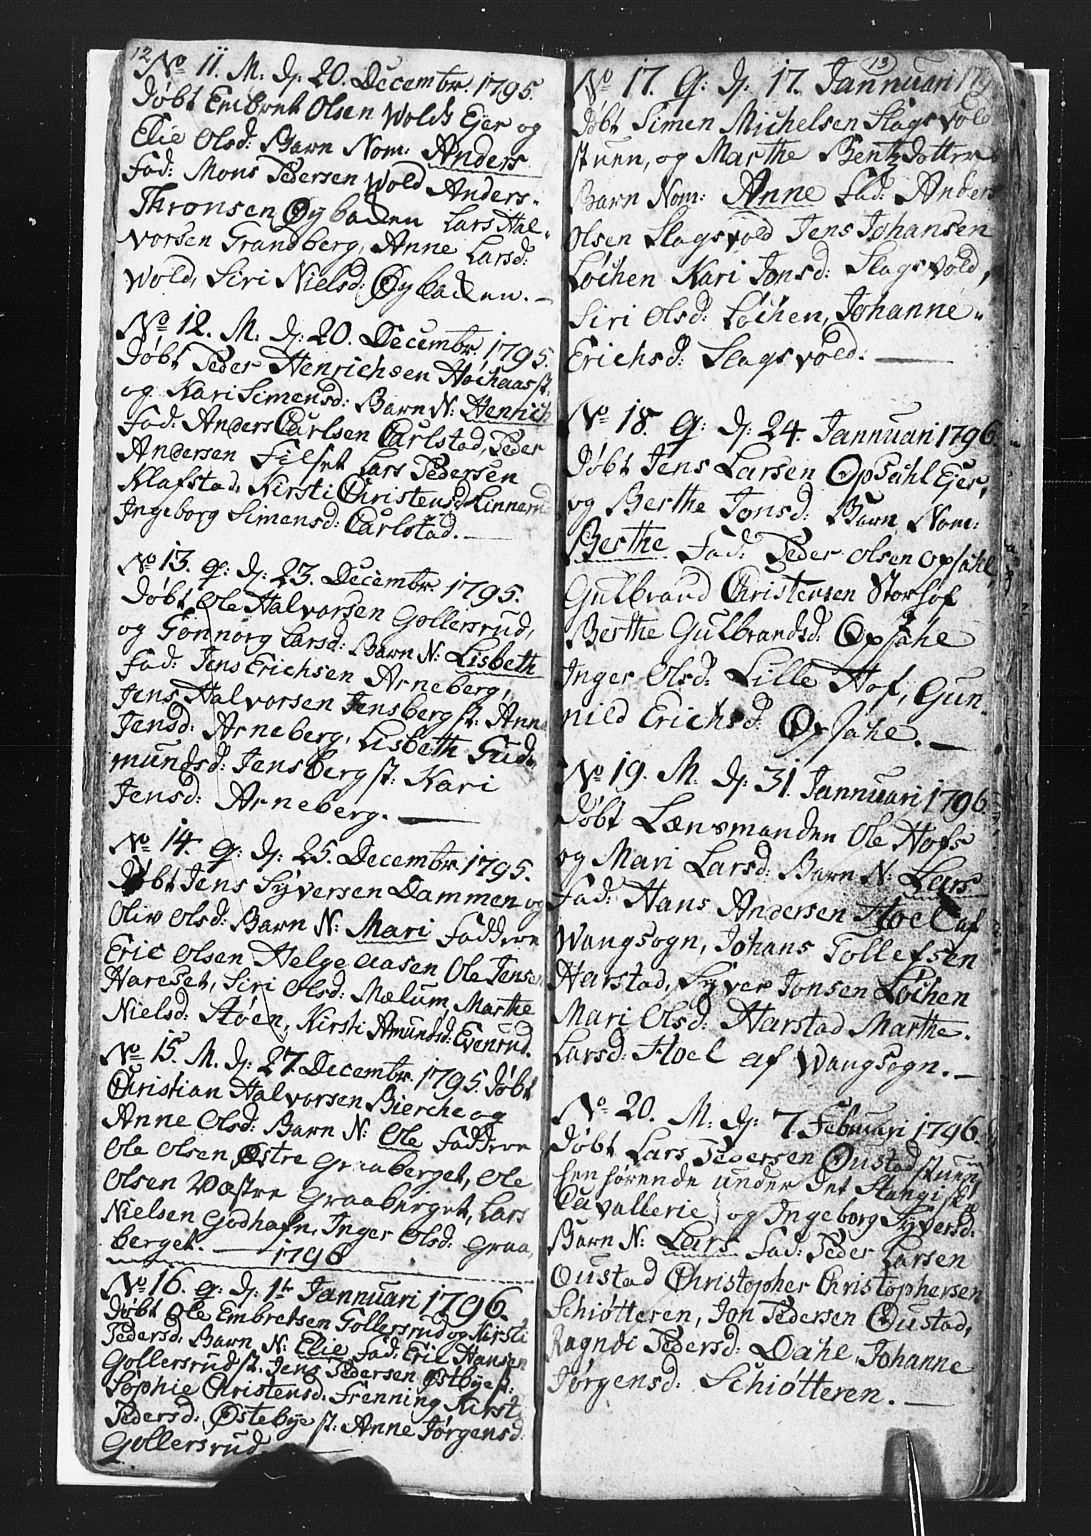 12
No 11. M. dj. 20. Decembr. 1795.
Døbt Embret Olsen Wolds Ejer og
Elie Olsd: Barn Nom: Anders
Fad: Mons Pedersen Wold Anders
Thronsen Øybaden Lars Hal-
vorsen Grandberg, Anne Larsd:
Wold, Siri Nielsd: Øybaden. —
No 12. M. dj. 20. Decembr. 1795.
Døbt Peder Henrichsen st,
og Kari Simensd: Barn N: Henrich
Fad: Anders Carlsen Carlstad, Peder
Andersen Filset Lars Pedersen
Klafstad, Kirsti Christensd
Ingeborg Simensd: Carlstad. —
No 13. q: dj: 23. Decembr. 1795.
Døbt Ole Halvorsen Gollersrud,
og Gønnorg Larsd: Barn N: Lisbeth
Fad: Jens Erichsen Arneberg,
Jens Halvorsen Jensberg st: Anne
Jensd: Arneberg, Lisbeth Gud-
mundsd: Jensberg st: Kari
Jensd: Arneberg. —
No 14. q: dj: 25. Decembr. 1795.
Døbt Jens Syversen Dammen og
Oliv Olsd: Barn N: Mari Faddere
Eric Olsen Helgeaasen Ole Jensen
Hareset, Siri Olsd: Mælum, Marthe
Nielsd: Støen, Kirsti Amundsd: Evenrud.
No 15. M. dj: 27. Decembr. 1795. Døbt
Christian Halvorsen Bierche og
Anne Olsd: Barn N: Ole Faddere
Ole Olsen Østre Graaberget, Ole
Olsen Væstre Graaberget, Lars
Nielsen Godhafn, Inger Olsd: Graa,
berget. — 1796
No 16. q: dj: 1te Jannuari 1796.
Døbt Ole Embretsen Gollersrud og Kirsti
Pedersd: Barn N: Elie Fad: Eric Hansen
Gollersrud st. Jens Pedersen Østbye st:
Sophie Christensd: Frenning Kirsti
Pedersd: Østebye st: Anne Jørgensd:
Gollersrud.
13
No 17. q: dj: 17. Jannuari 179
Døbt Simen Michelsen Slagsvold
stuen, og Marthe Bentzdotter
Barn Nom: Anne Fad: Anders
Olsen Slagsvold Jens Johansen
Løchen Kari Jonsd: Slagsvold,
Siri Olsd: Løchen, Johanne
Erichsd: Slagsvold. —
No 18. q: dj: 24. Jannuari 1796.
Døbt Jens Larsen Opsahl Ejer,
og Berthe Jonsd: Barn Nom:
Berthe. Fad: Peder Olsen Opsahl
Gulbrand Christensen Storhof
Berthe Gulbrandsd: Opsahl
Inger Olsd: Lille Hof, Gun-
nild Erichsd: Opsahl. —
No 19. M. dj. 31. Jannuari 1796.
Døbt Lænsmanden Ole Hofs
og Mari Larsd: Barn N: Lars
Fad: Hans Andersen Hoel af
Wangsogn, Johans Tollefsen
Harstad, Syver Jonsen Løchen
Mari Olsd: Harstad Marthe
Larsd: Hoel af Wangsogn. —
No 20. M. dj: 7. Febuari 1796.
Døbt Lars Pedersen Oustadstuen
henhørende under det
Cavallerie og Ingeborg Syversd:
Barn N: Lars Fad: Peder Larsen
Oustad Christopher Christophersen
Schiøtteren, Jon Pedersen Oustad,
Pedersd: Dahl Johanne
Jørgensd: Schiøtteren. —